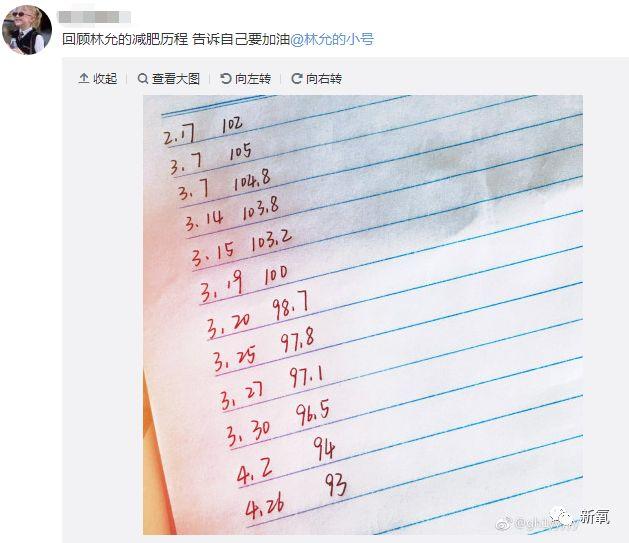 回顾林允的减肥历程 告诉自己要加油@林允的小号
收起 查看大图 向左转 向右转
2.17 102
3.7 105
3.7 104.8
3.14 103.8
3.15 103.2
3.19 100
3.20 98.7
3.25 97.8
3.27 97.1
3.30 96.5
4.2 94
4.26 93
新氧